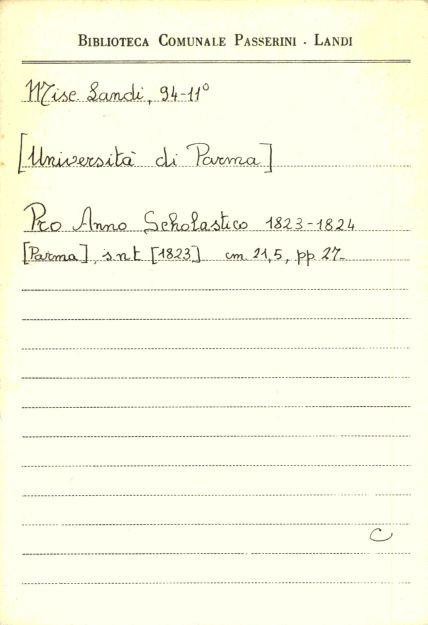 BIBLIOTECA COMUNALE PASSERINI - LANDI
Misc. Landi, 94-11°
[Università di Parma]
Pro Anno Scholastico 1823-1824
[Parma], s.n.t. [1823] cm. 21,5, pp. 27.
C